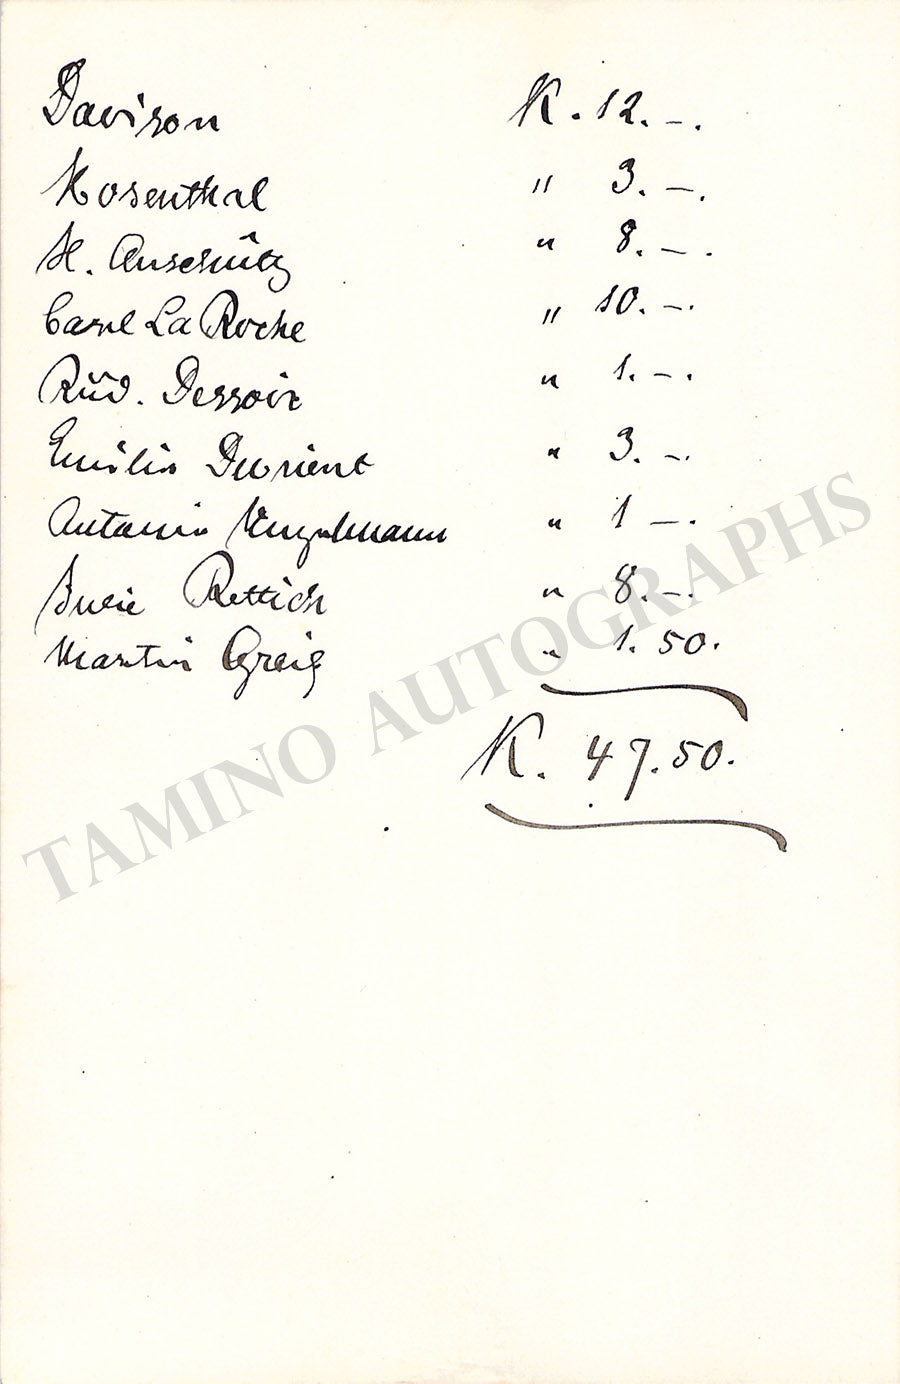 Davison K. 12. –.
Rosenthal " 3. –.
H. Anschütz " 8. –.
Carl La Roche " 10. –.
Rud. Dessoir " 1. –.
Emilie Devrient " 3. –.
Antonie " 1 –.
Julie Rettich " 8. –.
Martin Greif " 1. 50.
K. 47.50.
TAMINO AUTOGRAPHS